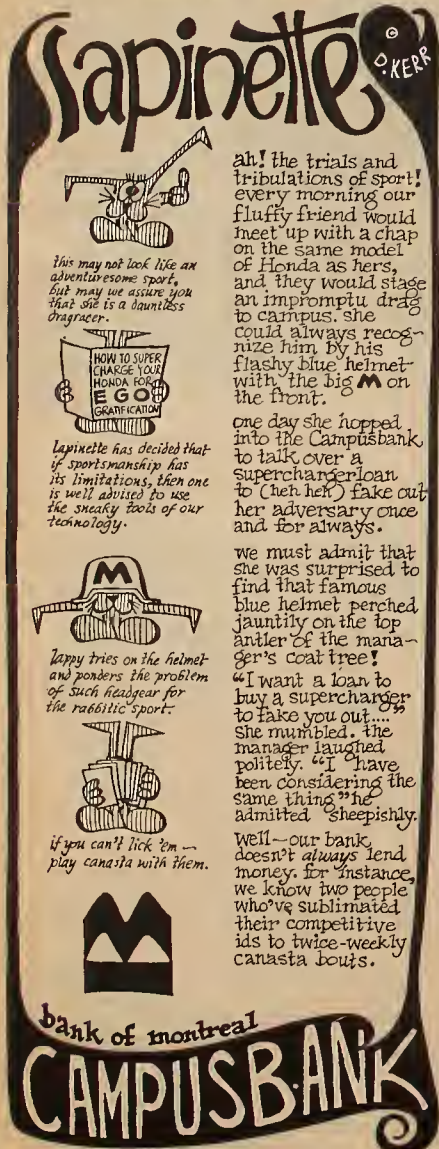 lapinette
© D. KERR
this may not look like an
adventuresome sport,
but may we assure you
that she is a dauntless
dragracer.
HOW TO SUPER
CHARGE YOUR
HONDA FOR
EGO
GRATIFICATION
lapinette has decided that
if sportsmanship has
its limitations, then one
is well advised to use
the sneaky tools of our
technology.
M
lappy tries on the helmet
and ponders the problem
of such headgear for
the rabbitic sport.
if you can't lick 'em —
play canasta with them.
ah! the trials and
tribulations of sport!
every morning our
fluffy friend would
meet up with a chap
on the same model
of Honda as hers,
and they would stage
an impromptu drag
to campus. she
could always recog-
nize him by his
flashy blue helmet
with the big M on
the front.
one day she hopped
into the Campusbank
to talk over a
superchargerloan
to (heh heh) fake out
her adversary once
and for always.
we must admit that
she was surprised to
find that famous
blue helmet perched
jauntily on the top
antler of the mana-
ger's coat tree!
"I want a loan to
buy a supercharger
to fake you out...."
she mumbled. the
manager laughed
politely. "I have
been considering the
same thing" he
admitted sheepishly.
well—our bank
doesn't always lend
money. for instance,
we know two people
who've sublimated
their competitive
ids to twice-weekly
canasta bouts.
M
bank of montreal
CAMPUSBANK